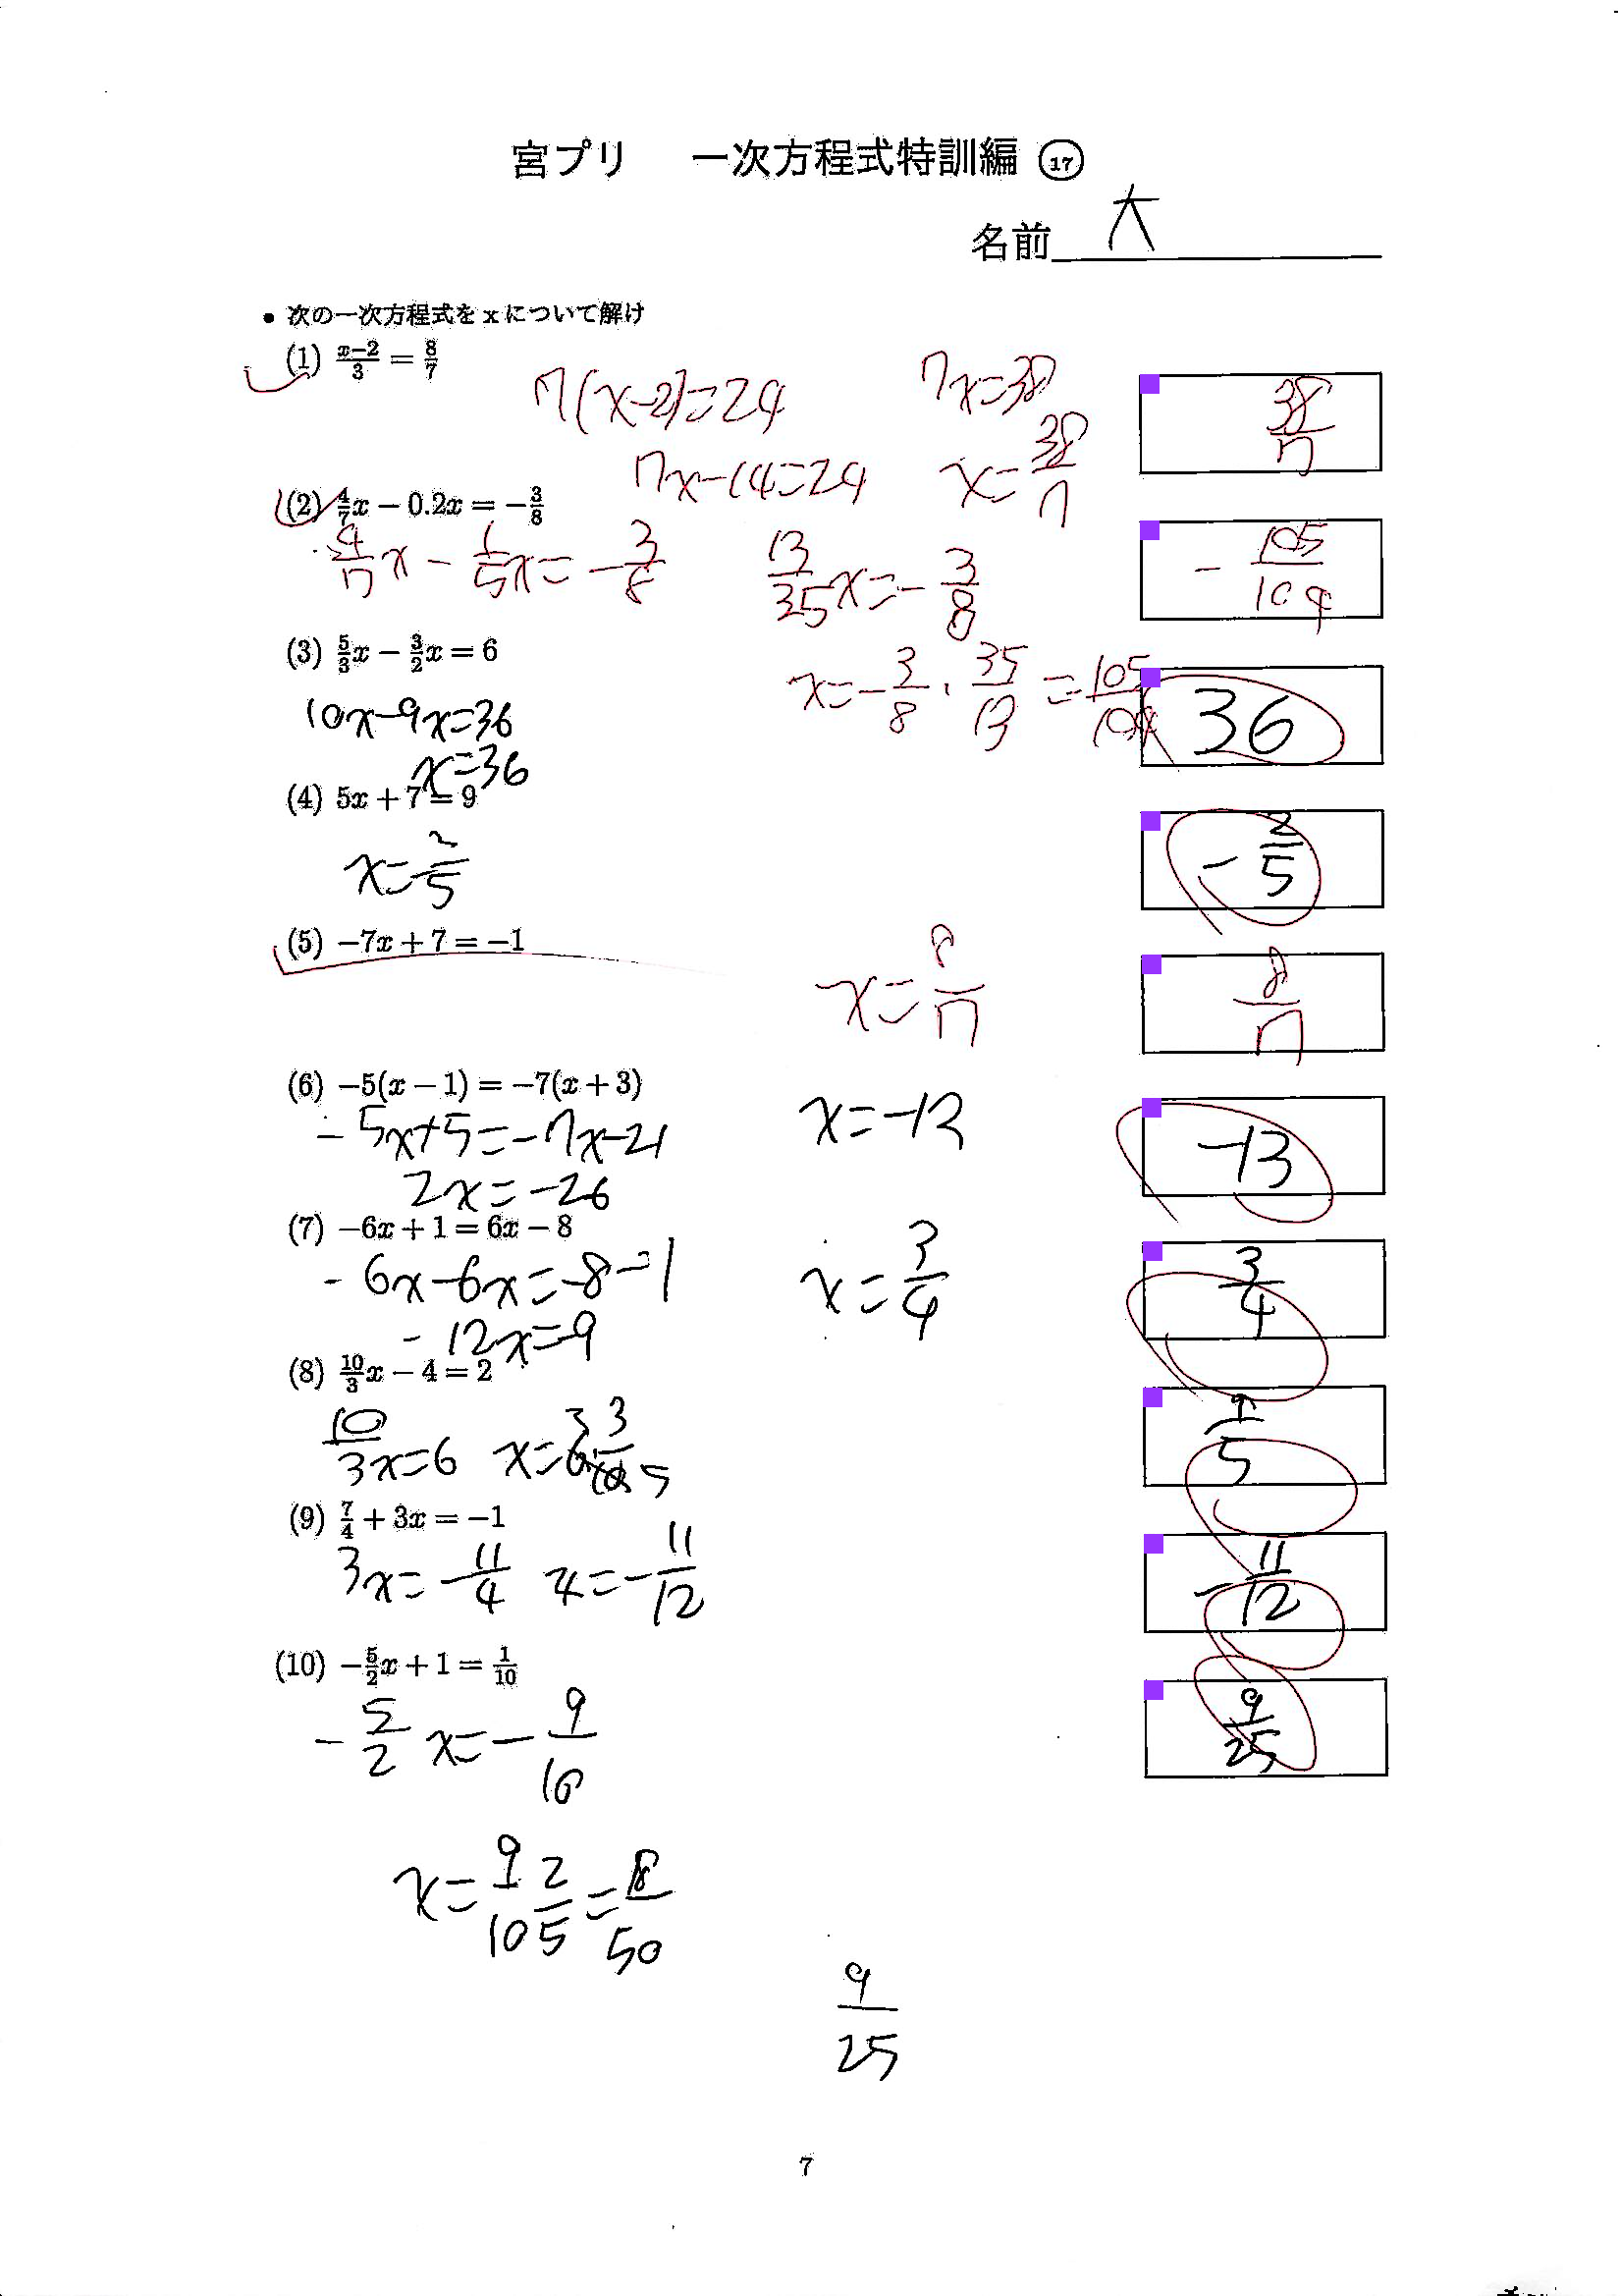 宮プリ　一次方程式特訓編 ⑰
名前 大
• 次の一次方程式を x について解け
(1) \frac{x-2}{3} = \frac{8}{7}
7(x-2)=24
7x-14=24
7x=38
x=\frac{38}{7}
\frac{38}{7}
(2) \frac{4}{7}x - 0.2x = -\frac{3}{8}
\frac{4}{7}x - \frac{1}{5}x = -\frac{3}{8}
\frac{13}{35}x = -\frac{3}{8}
x = -\frac{3}{8} \cdot \frac{35}{13} = -\frac{105}{104}
-\frac{105}{104}
(3) \frac{5}{3}x - \frac{3}{2}x = 6
10x-9x=36
x=36
36
(4) 5x + 7 = 9
x=\frac{2}{5}
-\frac{2}{5}
(5) -7x + 7 = -1
x=\frac{8}{7}
\frac{8}{7}
(6) -5(x - 1) = -7(x + 3)
-5x+5=-7x-21
2x=-26
x=-13
-13
(7) -6x + 1 = 6x - 8
-6x-6x=-8-1
-12x=-9
x=\frac{3}{4}
\frac{3}{4}
(8) \frac{10}{3}x - 4 = 2
\frac{10}{3}x=6
\frac{9}{5}
(9) \frac{7}{4} + 3x = -1
3x=-\frac{11}{4}
x=-\frac{11}{12}
-\frac{11}{12}
(10) -\frac{5}{2}x + 1 = \frac{1}{10}
-\frac{5}{2}x=-\frac{9}{10}
x=\frac{9}{10}\frac{2}{5}=\frac{18}{50}
\frac{9}{25}
\frac{9}{25}
7